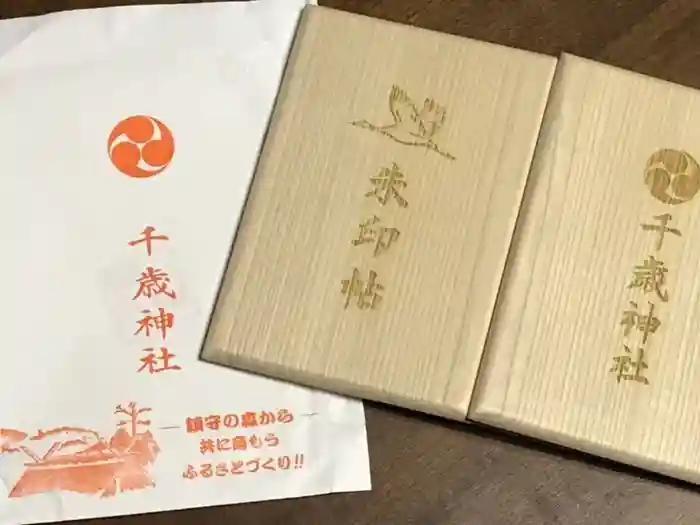 千歳神社
鎮守の森から
共に高もう
ふるさとづくり!!
朱印帖
千歳神社